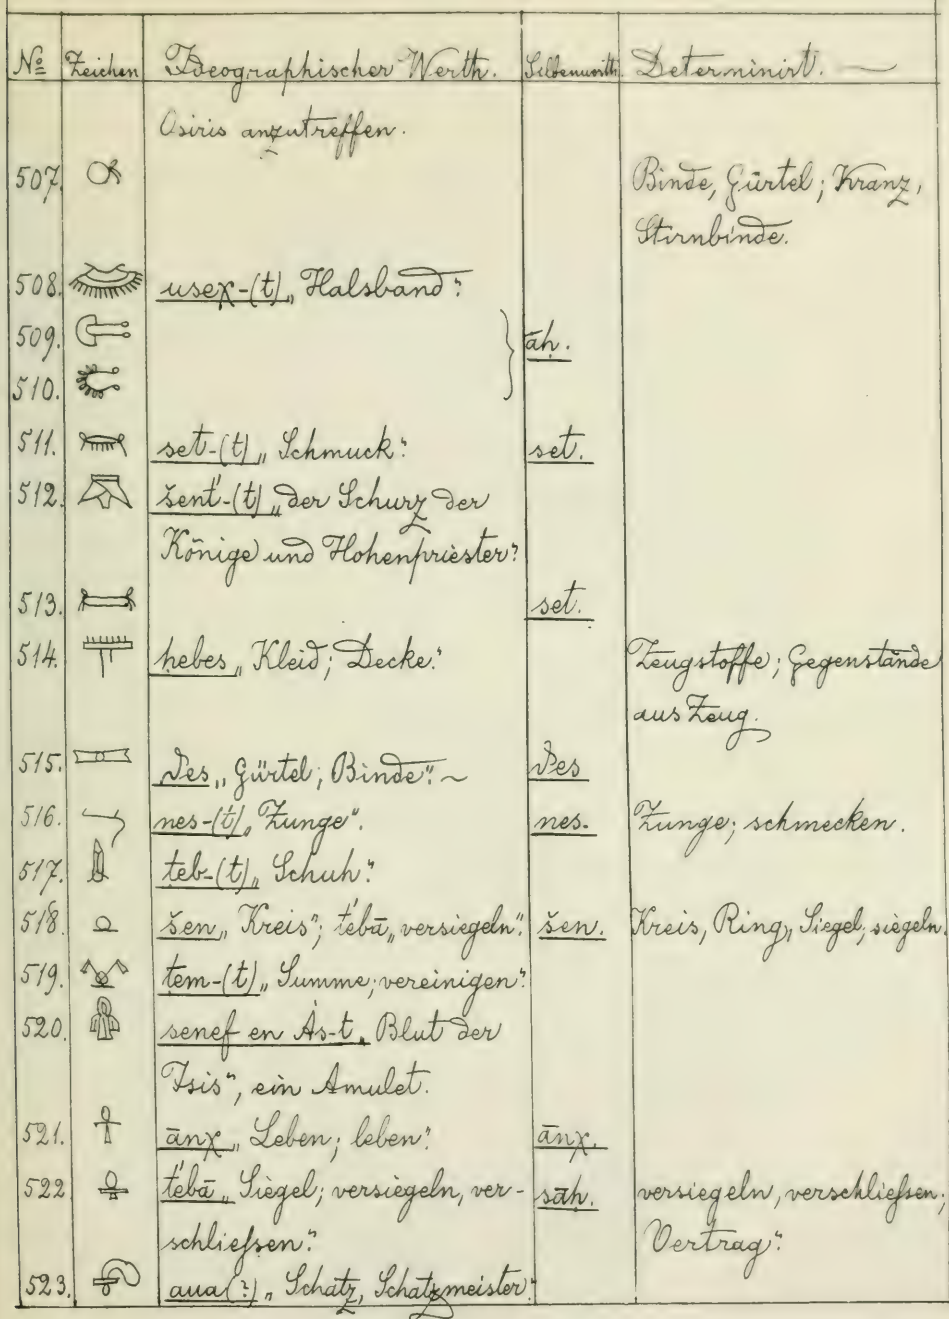 No Zeichen Ideographischer Werth. Silbenwerth Determinirt. —
Osiris anzutreffen.
507. Binde, Gürtel; Kranz,
Stirnbinde.
508. useχ-(t) „Halsband".
509. āḥ.
510.
511. set-(t) „Schmuck". set.
512. šent́-(t) „der Schurz der
Könige und Hohenpriester".
513. set.
514. hebes „Kleid; Decke." Zeugstoffe; Gegenstände
aus Zeug.
515. des „Gürtel; Binde". des
516. nes-(t) „Zunge". nes. Zunge; schmecken.
517. teb-(t) „Schuh".
518. šen „Kreis"; t́ebā „versiegeln". šen. Kreis, Ring, Siegel; siegeln.
519. tem-(t) „Summe; vereinigen".
520. senef en Ȧs-t „Blut der
Isis", ein Amulet.
521. ānχ „Leben; leben". ānχ.
522 t́ebā „Siegel; versiegeln, ver-
schließen". sāh. versiegeln, verschließen;
Vertrag".
523. aua(?) „Schatz, Schatzmeister"